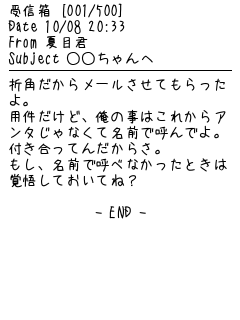 受信箱 [001/500]
Date 10/08 20:33
From 夏目君
Subject ○○ちゃんへ
折角だからメールさせてもらった
よ。
用件だけど、俺の事はこれからア
ンタじゃなくて名前で呼んでよ。
付き合ってんだからさ。
もし、名前で呼べなかったときは
覚悟しておいてね？
- END -